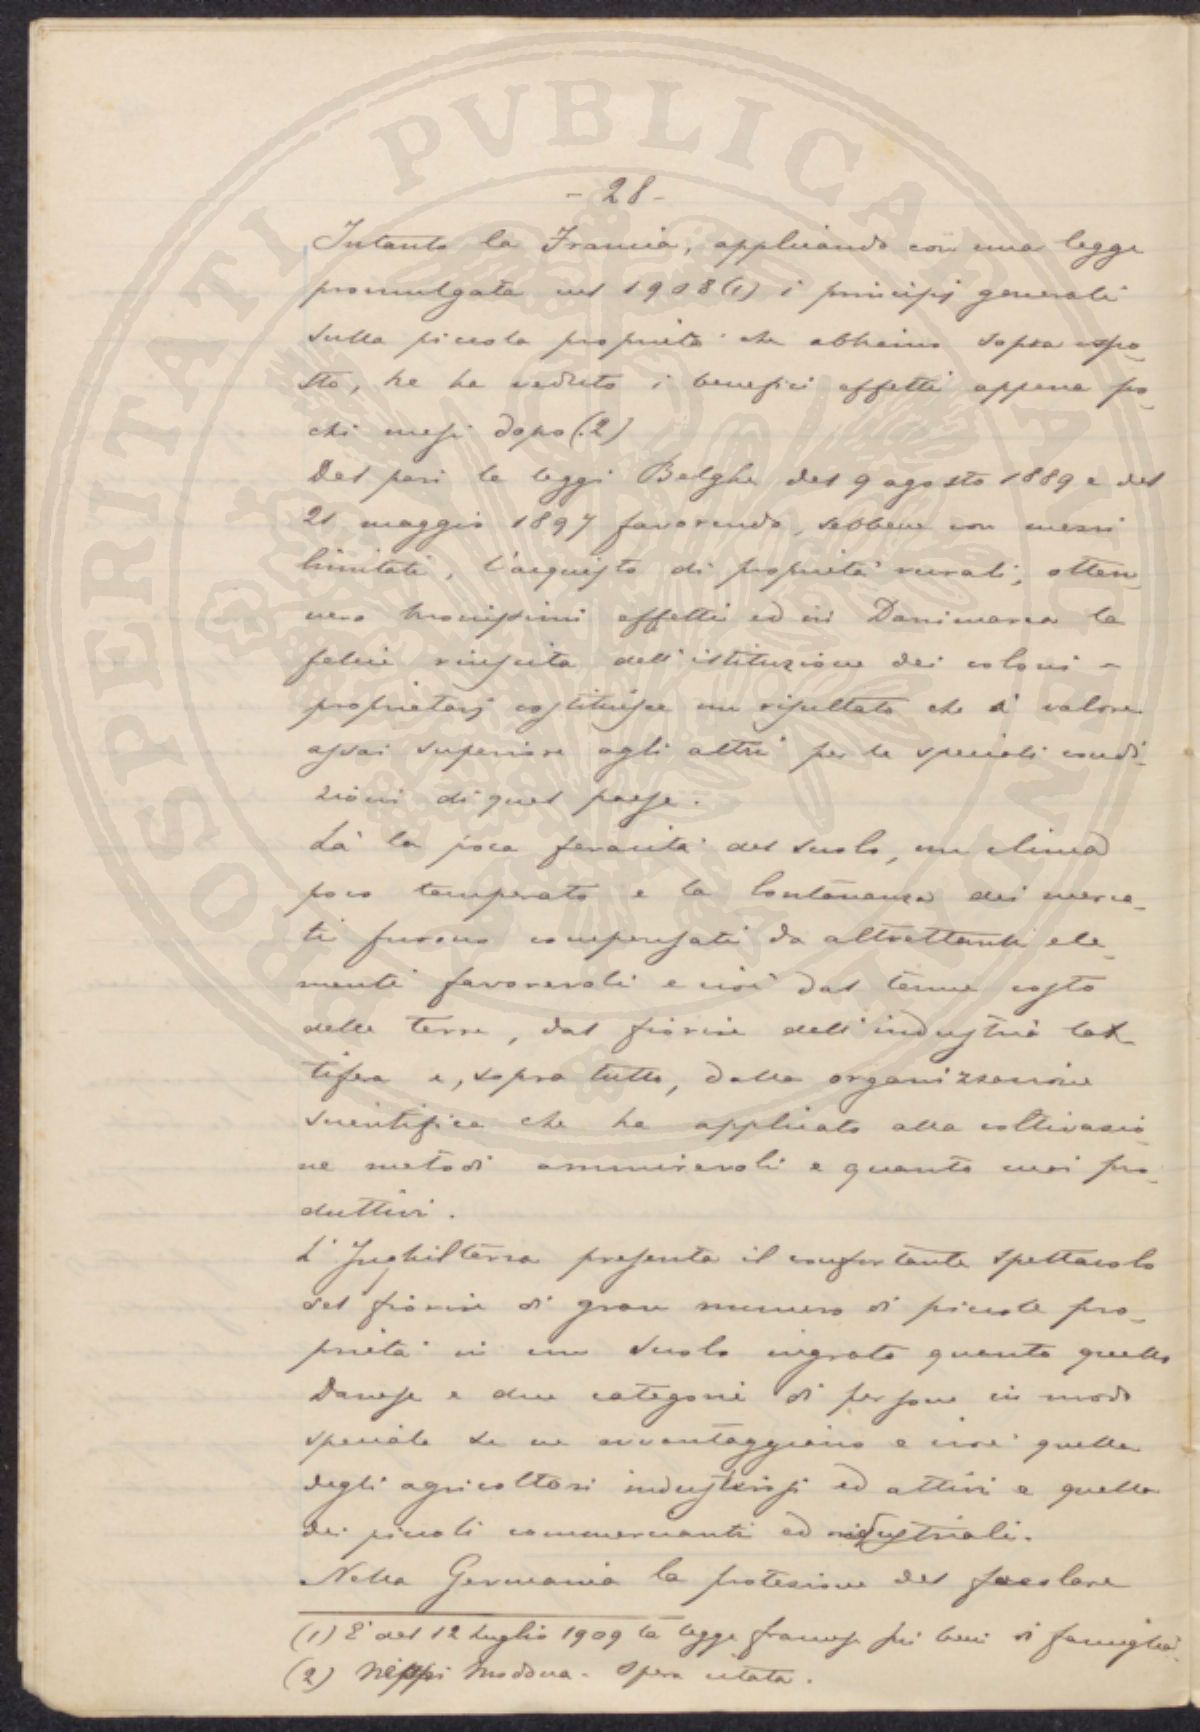 PROSPERITATI PVBLICAE AVGENDAE
- 28 -
Intanto la Francia, applicando con una legge
promulgata nel 1908 (1) i principj generali
sulla piccola proprietà che abbiamo sopra espo-
sto, ne ha veduto i benefici effetti appena po-
chi mesi dopo (2)
Del pari le leggi Belghe del 9 agosto 1889 e del
21 maggio 1897 favorendo, sebbene con mezzi
limitati, l'acquisto di proprietà rurali, otten-
nero effetti ed in Danimarca la
felice riuscita dell'istituzione dei coloni -
proprietarj costituisce un risultato che à valore
assai superiore agli altri per le speciali condi-
zioni di quel paese.
Là la poca feracità del suolo, un clima
poco temperato e la lontananza dei merca-
ti furono compensati da altrettanti ele-
menti favorevoli e cioè dal tenue costo
delle terre, dal fiorire dell'industria lat-
tifera e, sopra tutto, dalla organizzazione
scientifica che ha applicato alla coltivazio-
ne metodi ammirevoli e quanto mai pro-
duttivi.
L'Inghilterra presenta il confortante spettacolo
del fiorire di gran numero di piccole pro-
prietà in un suolo ingrato quanto quello
Danese e due categorie di persone in modo
speciale se ne avvantaggiano e cioè quella
degli agricoltori industriosi ed attivi e quella
dei piccoli commercianti ed industriali.
Nella Germania la protezione del focolare
(1) E' del 12 Luglio 1909 la legge francese sui beni di famiglia.
(2) Neppi Modona - Opera citata.